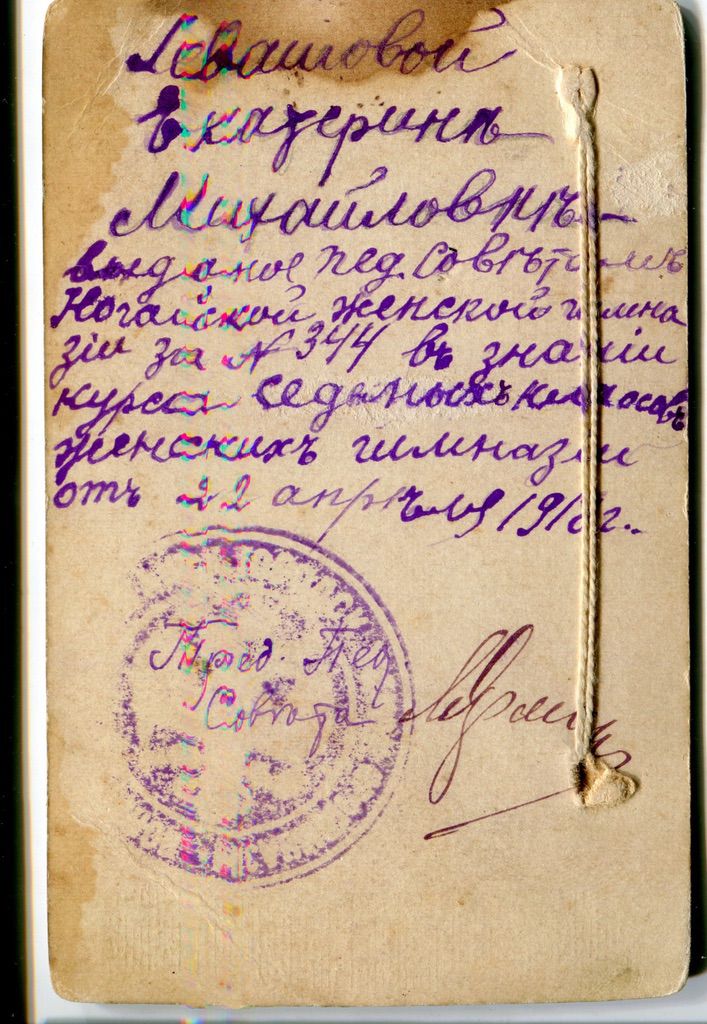 Левашовой
Екатеринѣ
Михайловнѣ
выданое пед. Совѣтомъ
Ногайской женской гимна
зіи за № 344 въ знаніи
курса седьмыхъ классовъ
женскихъ гимназіи
отъ 22 апрѣля 1918г.
Пред. Пед
Совѣта